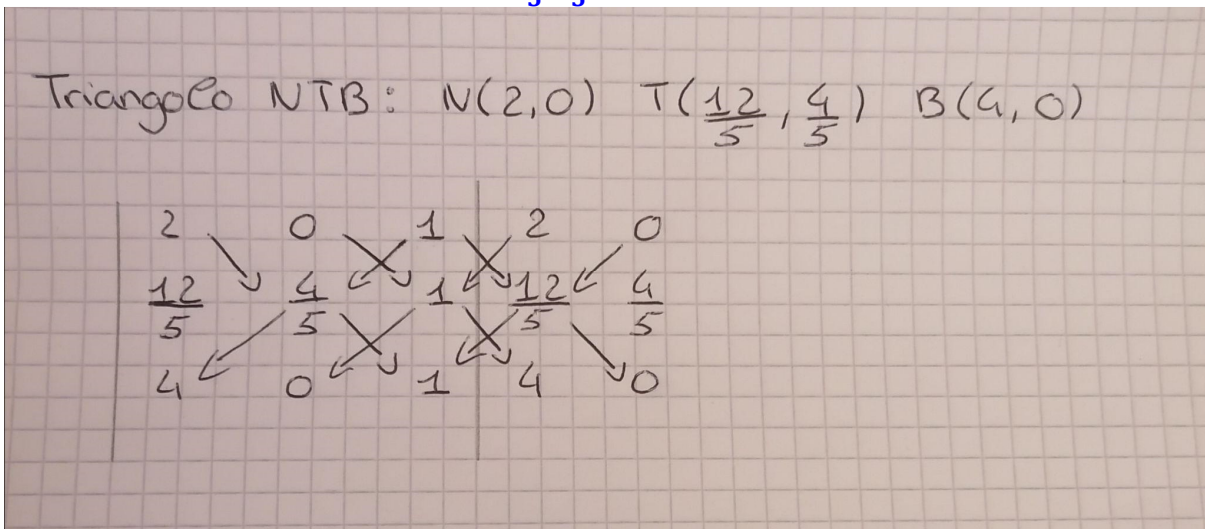 Triangolo NTB: N(2,0) T(12/5, 4/5) B(4,0)
2 0 1 2 0
12/5 4/5 1 12/5 4/5
4 0 1 4 0